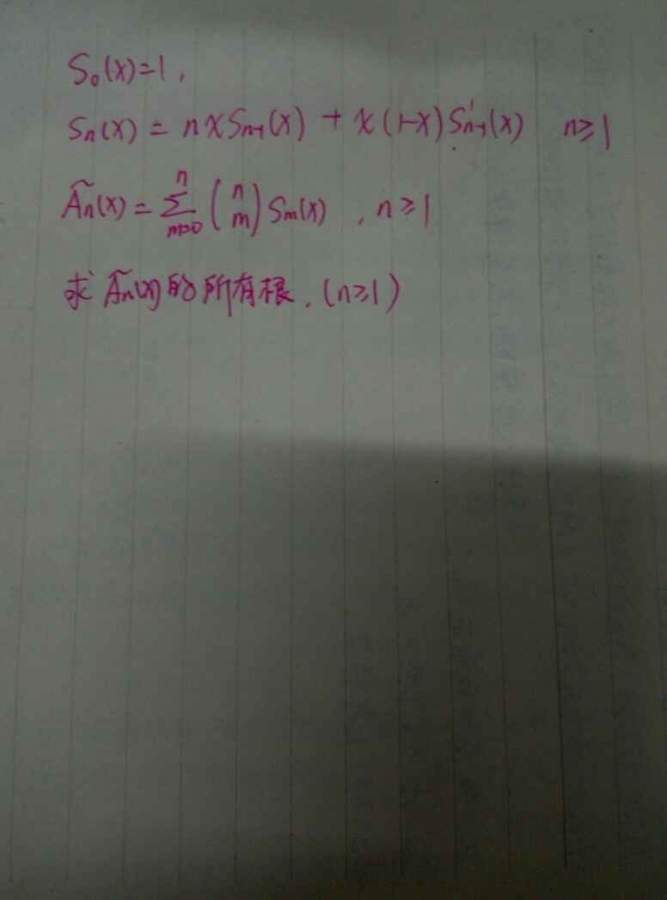 S₀(x)=1,
Sₙ(x) = nxSₙ₋₁(x) + x(1-x)S'ₙ₋₁(x) n≥1
Ãₙ(x) = ∑ₘ₌₀ⁿ (n m) Sₘ(x) , n≥1
求 Ãₙ(x) 的所有根. (n≥1)